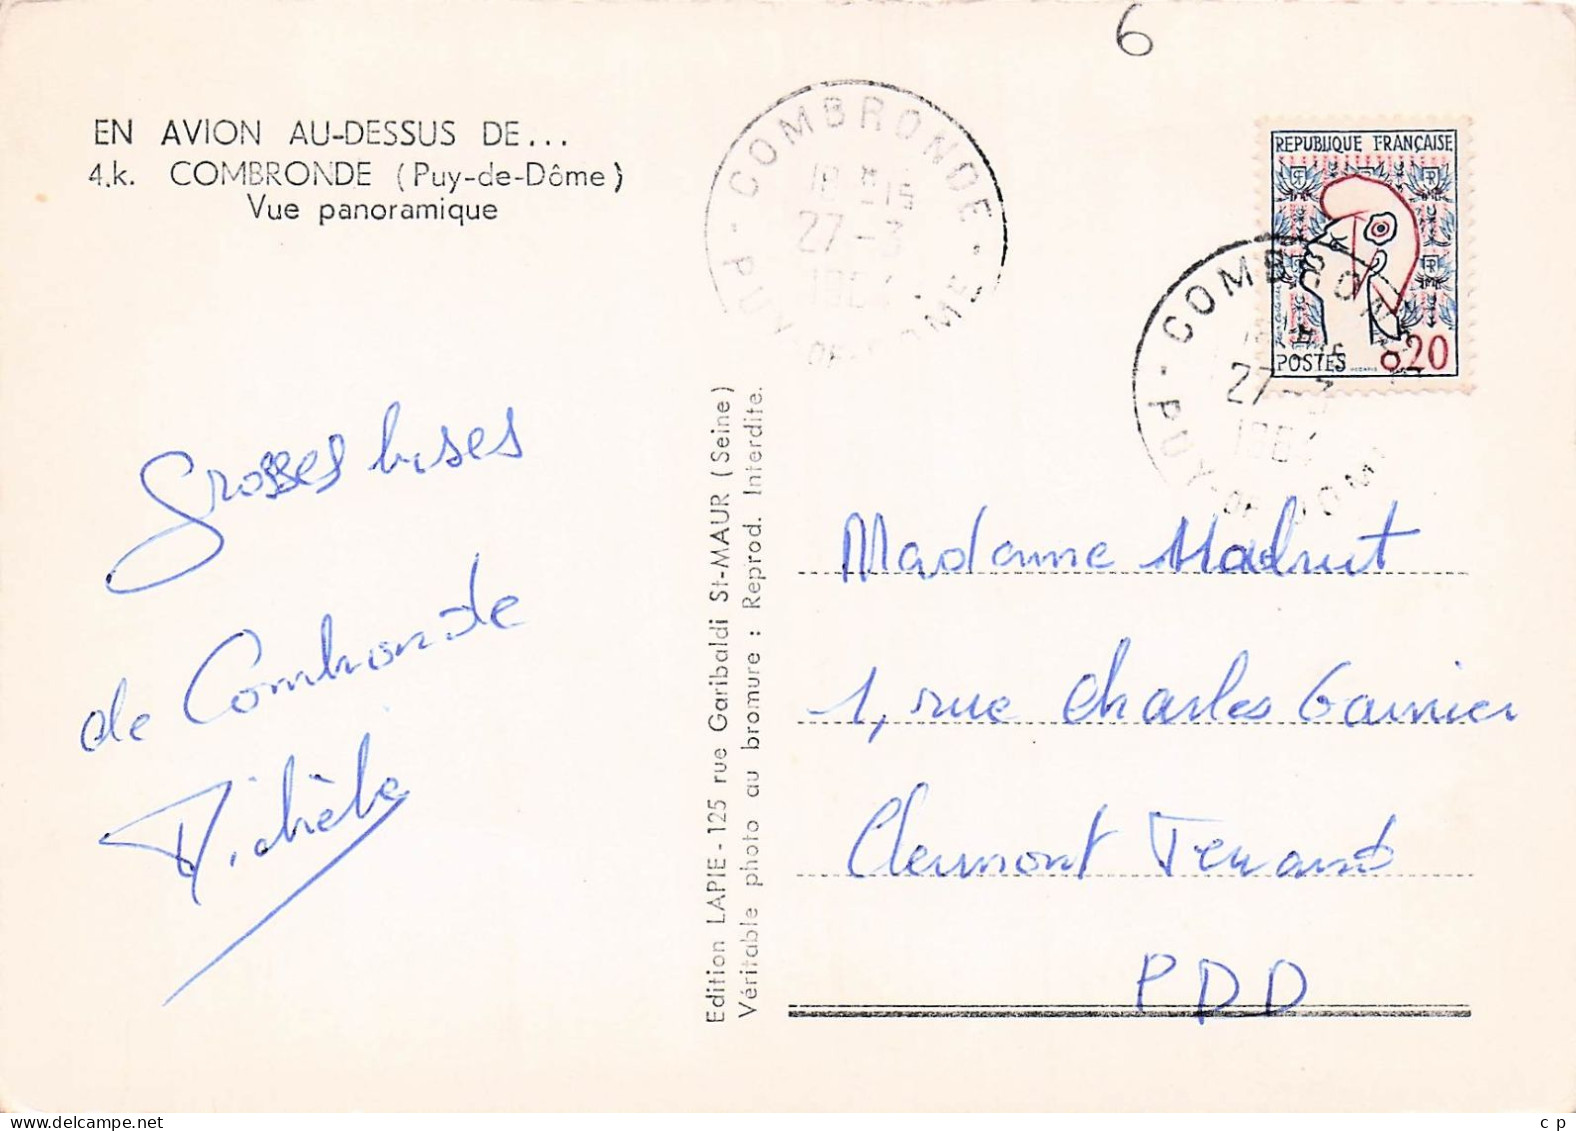 6
EN AVION AU-DESSUS DE...
4.k. COMBRONDE (Puy-de-Dôme)
Vue panoramique
COMBRONDE
18 H 15
27-3
1964
PUY-DE-DOME
REPUBLIQUE FRANÇAISE
POSTES 0,20
COMBRONDE
27-3
1964
PUY-DE-DOME
Grosses bises
de Combronde
Michèle
Edition LAPIE - 125 rue Garibaldi St-MAUR (Seine)
Véritable photo au bromure : Reprod. Interdite.
Madame
1, rue Charles Garnier
Clermont Ferrand
PDD
www.delcampe.net
c p